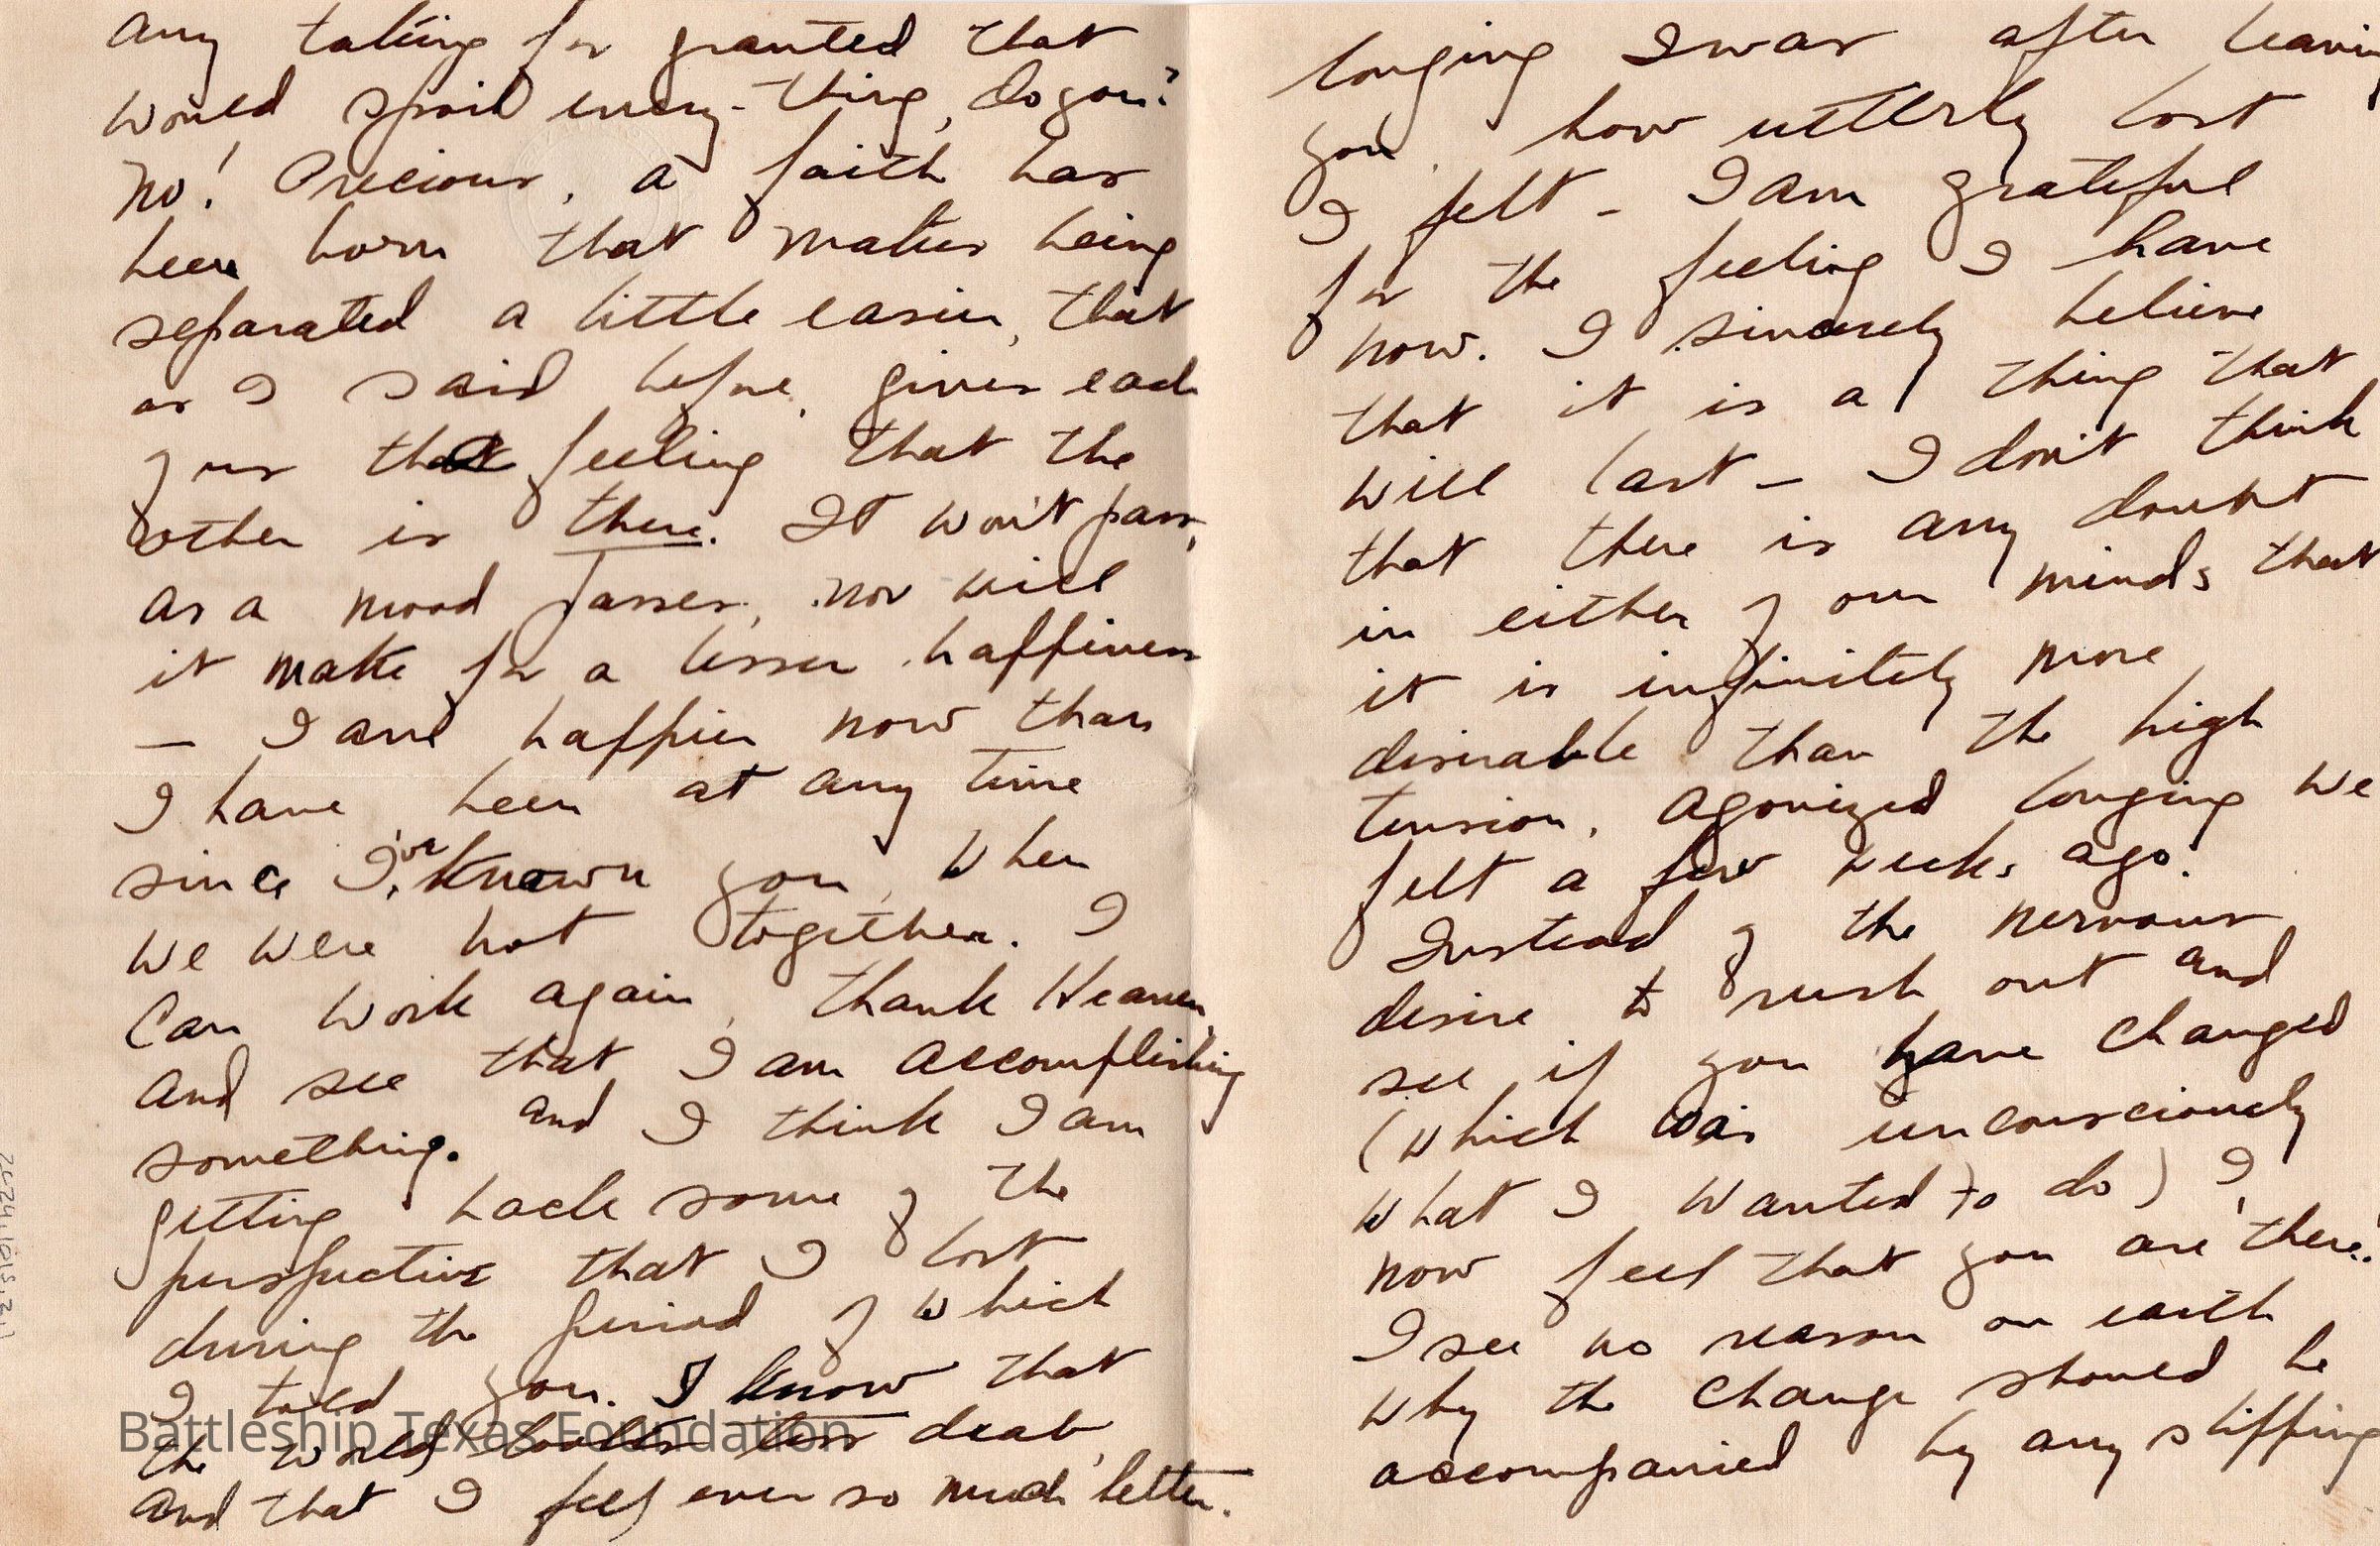 any taking for granted that
would spoil every-thing, do you?
No! Precious, a faith has
been born that makes being
separated a little easier, that
as I said before, gives each
of us that feeling that the
other is there. It won't pass,
as a mood passes, nor will
it make for a lesser happiness
— I am happier now than
I have been at any time
since I've known you, when
we were not together. I
can work again, thank Heaven,
and see that I am accomplishing
something. and I think I am
getting back some of the
perspective that I lost
during the period of which
I told you. I know that
the world looks less drab,
and that I feel ever so much better.
longing I was after leaving
you, how utterly lost
I felt - I am grateful
for the feeling I have
now. I sincerely believe
that it is a thing that
will last - I don't think
that there is any doubt
in either of our minds that
it is infinitely more
desirable than the high
tension, agonized longing we
felt a few weeks ago.
Instead of the nervous
desire to rush out and
see if you have changed
(which was unconsciously
what I wanted to do) I
now feel that you are 'there.'
I see no reason on earth
why the change should be
accompanied by any slipping
Battleship Texas Foundation